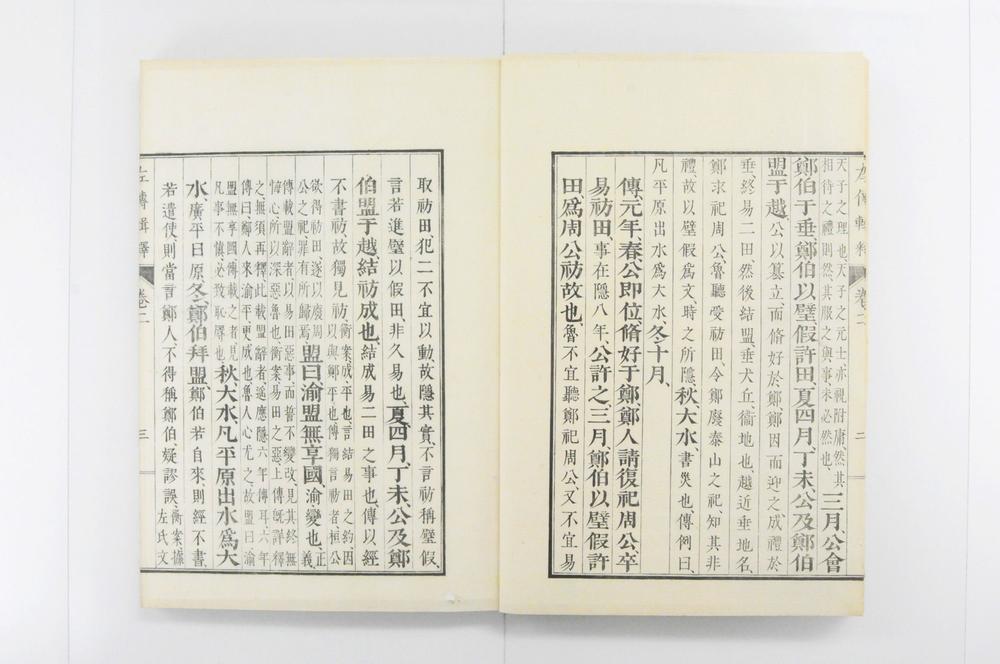 左傳輯釋
卷二
二
天子之理也、天子之元士亦視附庸、然其
相待之禮則然、其服之與事、未必然也、
三月、公會
鄭伯于垂、鄭伯以璧假許田、夏四月、丁未、公及鄭伯
盟于越、公以篡立、而脩好於鄭、鄭因而迎之、成禮於
垂、終易二田、然後結盟、垂犬丘、衞地也、越近垂地名、
鄭求祀周公、魯聽受祊田、令鄭廢泰山之祀、知其非
禮、故以璧假爲文、時之所隱、秋、大水、書災也、傳例曰、
凡平原出水爲大水、冬、十月、
傳、元年、春、公即位、脩好于鄭、鄭人請復祀周公、卒
易祊田、事在隱八年、公許之、三月、鄭伯以璧假許
田、爲周公祊故也、魯不宜聽鄭祀周公、又不宜易
取祊田、犯二不宜以動、故隱其實、不言祊、稱璧假、
言若進璧以假田、非久易也、夏、四月、丁未、公及鄭
伯盟于越、結祊成也、結成易二田之事也、傳以經
不書祊、故獨見祊、
衡案、成、平也、言結易田之約、因
以與鄭平也、傳獨言祊者、桓公
欲得祊田、遂以廢周
公之祀、罪有所歸焉、
盟曰、渝盟無享國、渝、變也、
正義、
傳載盟辭者、以易田惡事、而誓不變改、見其終無
悔心、所以深惡魯也、衡案、易田之惡、上傳旣詳釋
之、無須再釋、此載盟辭者、遙應隱六年傳耳、六年
傳曰、鄭人來渝平、更成也、魯人心尤之、故盟曰渝
盟無享國、傳載之者、見
凡事不愼、必致恥辱也、
秋、大水、凡平原出水爲大
水、廣平曰原、冬、鄭伯拜盟、鄭伯若自來、則經不書、
若遣使、則當言鄭人、不得稱鄭伯、疑謬誤、
衡案、據
左氏文
左傳輯釋
卷二
三